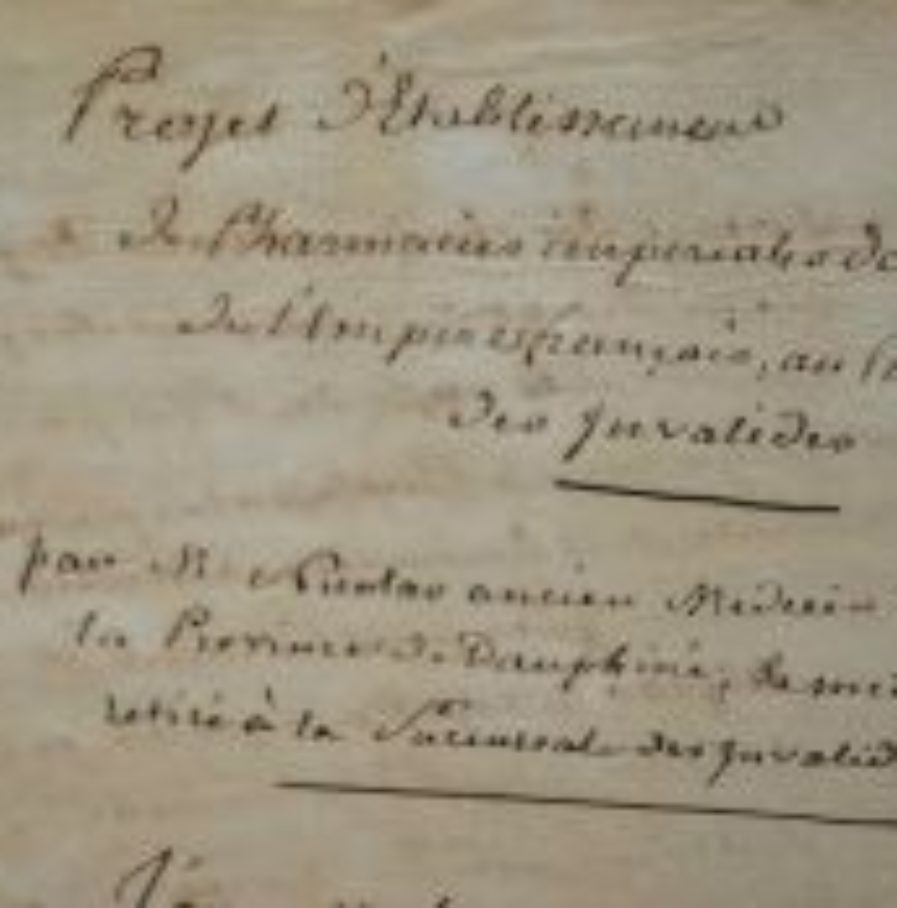 Projet d'Etablissement
de Pharmacies impériales
de l'Empire français, au
des Invalides
par M Nicolas ancien Medecin
la Province de Dauphiné,
retiré à la Succursale des Invalid